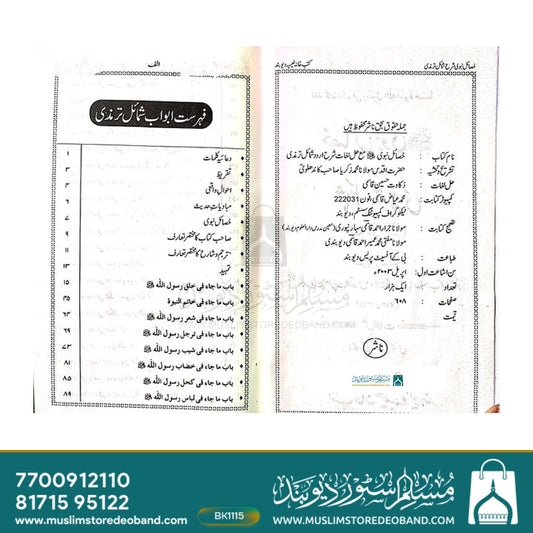 خصائل نبوی شرح شمائل ترمذی
کتب خانہ طیب دیوبند
جملہ حقوق بحق ناشر محفوظ ہیں
نام کتاب : خصائل نبوی ﷺ مع حل لغات شرح اردو شمائل ترمذی
تشریح وتحشیہ : حضرت اقدس مولانا محمد زکریا صاحب کاندھلویؒ
حل لغات : ذکاوت حسین قاسمی
کمپیوٹر کتابت : محمد عیاض قاسمی فون 222031
کمپیوٹنگ سسٹم، دیوبند
تصحیح کتابت :
طباعت : بی کے آفسیٹ پریس دیوبند
سن اشاعت اول : اپریل ۲۰۰۳ء
تعداد : ایک ہزار
صفحات : ۶۰۸
قیمت
ناشر
مسلم سٹور دیوبند
الف
فہرست ابواب شمائل ترمذی
دعائیہ کلمات ۱
تقریظ ۳
احوال واقعی ۴
مبادیات حدیث ۶
خصائل نبوی ۷
صاحب کتاب کا مختصر تعارف ۹
مترجم وشارح کا مختصر تعارف ۱۱
تمہید ۱۳
باب ما جاء فی خلق رسول الله ﷺ ۱۵
باب ما جاء فی خاتم النبوة ۳۵
باب ما جاء فی شعر رسول الله ﷺ ۶۳
باب ما جاء فی ترجل رسول الله ﷺ ۶۹
باب ما جاء فی شیب رسول الله ﷺ ۷۳
باب ما جاء فی خضاب رسول الله ﷺ ۸۱
باب ما جاء فی کحل رسول الله ﷺ ۸۵
باب ما جاء فی لباس رسول الله ﷺ ۸۹
مسلم سٹور دیوبند
WWW.MUSLIMSTOREDEOBAND.COM
7700912110
81715 95122
www.muslimstoredeoband.com
BK1115
مسلم سٹور دیوبند
WWW.MUSLIMSTOREDEOBAND.COM